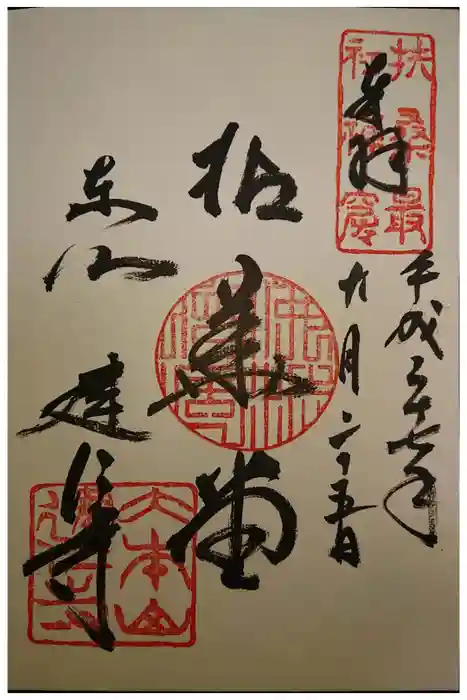 扶桑最
初禅窟
奉拝
平成二十七年
九月二十五日
拈華堂
東山
建仁寺
大本山
建仁寺